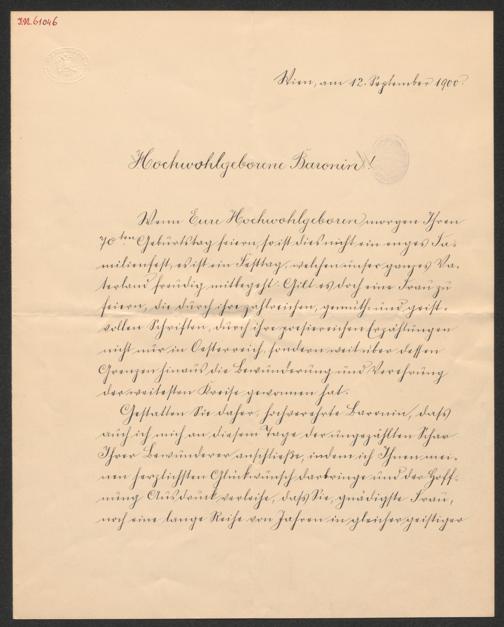 I.N. 61046
Wien, am 12. September 1900.
Hochwohlgeborene Baronin!
Wenn Eure Hochwohlgeboren morgen Ihren
70ten Geburtstag feiern, so ist dies nicht ein enges Fa-
milienfest, es ist ein Festtag, welchen unser ganzes Va-
terland freudig mitbegeht. Gilt es doch eine Frau zu
feiern, die durch ihre zahlreichen, gemüth- und geist-
vollen Schriften, durch ihre poesiereichen Erzählungen
nicht nur in Oesterreich, sondern weit über dessen
Grenzen hinaus die Bewunderung und Verehrung
der weitesten Kreise gewonnen hat.
Gestatten Sie daher, hochverehrte Baronin, dass
auch ich mich an diesem Tage der ungezählten Schar
Ihrer Bewunderer anschließe, indem ich Ihnen mei-
nen herzlichsten Glückwunsch darbringe und der Hoff-
nung Ausdruck verleihe, dass Sie, gnädigste Frau,
noch eine lange Reihe von Jahren in gleicher geistiger